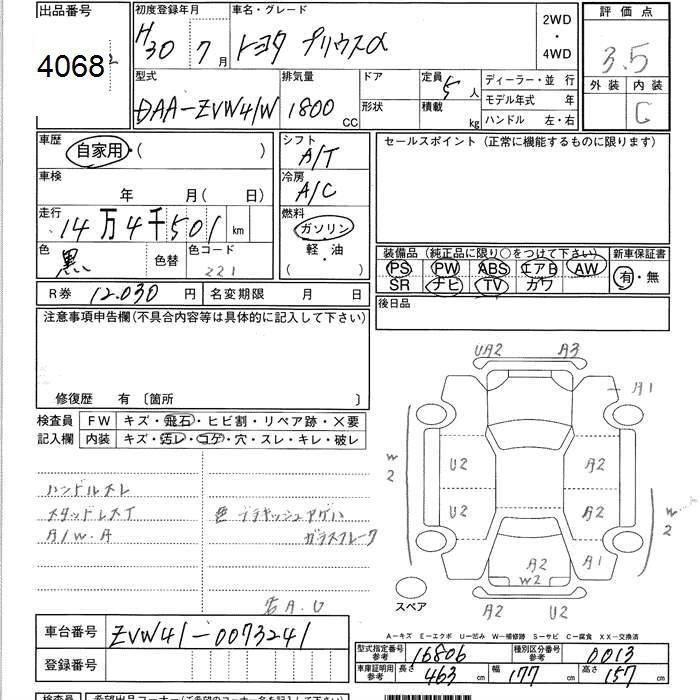 出品番号
4068
初度登録年月
H30 7月
車名・グレード
トヨタ プリウスα
2WD
・
4WD
評価点
3.5
外装 内装
C
型式
DAA-ZVW41W
排気量
1800 CC
ドア
形状
定員
5人
積載
kg
ディーラー・並 行
モデル年式 年
ハンドル 左・右
車歴
自家用・( )
シフト
A/T
セールスポイント(正常に機能するものに限ります)
車検
年 月( 日)
冷房
A/C
走行
14万4千501 km
燃料
ガソリン
・
軽・油
( )
色
黒
色替
色コード
221
装備品(純正品に限り○をつけて下さい)
PS PW ABS エアB AW
SR ナビ TV カワ
新車保証書
有・無
R券 12,030 円
名変期限 月 日
後日品
注意事項申告欄(不具合内容等は具体的に記入して下さい)
修復歴 有〔箇所 〕
検査員
記入欄
FW キズ・飛石・ヒビ割・リペア跡・×要
内装 キズ・汚レ・コゲ・穴・スレ・キレ・破レ
ハンドルスレ
スタッドレスT
A/W.A
色
ガラスフレーク
UA2 A3
A1
U2 A2
W2
U2 A2
W2
A2 A1
W2
A2 U2
スペア
車台番号 ZVW41-0073241
登録番号
A-キズ E-エクボ U-凹み W-補修跡 S-サビ C-腐食 XX-交換済
型式指定番号
参考
16806
種別区分番号
参考
0013
車庫証明用
参考
長さ 463 cm
幅 177 cm
高さ 157 cm
検査員 希望出品コーナー(ご希望のコーナー名を記入